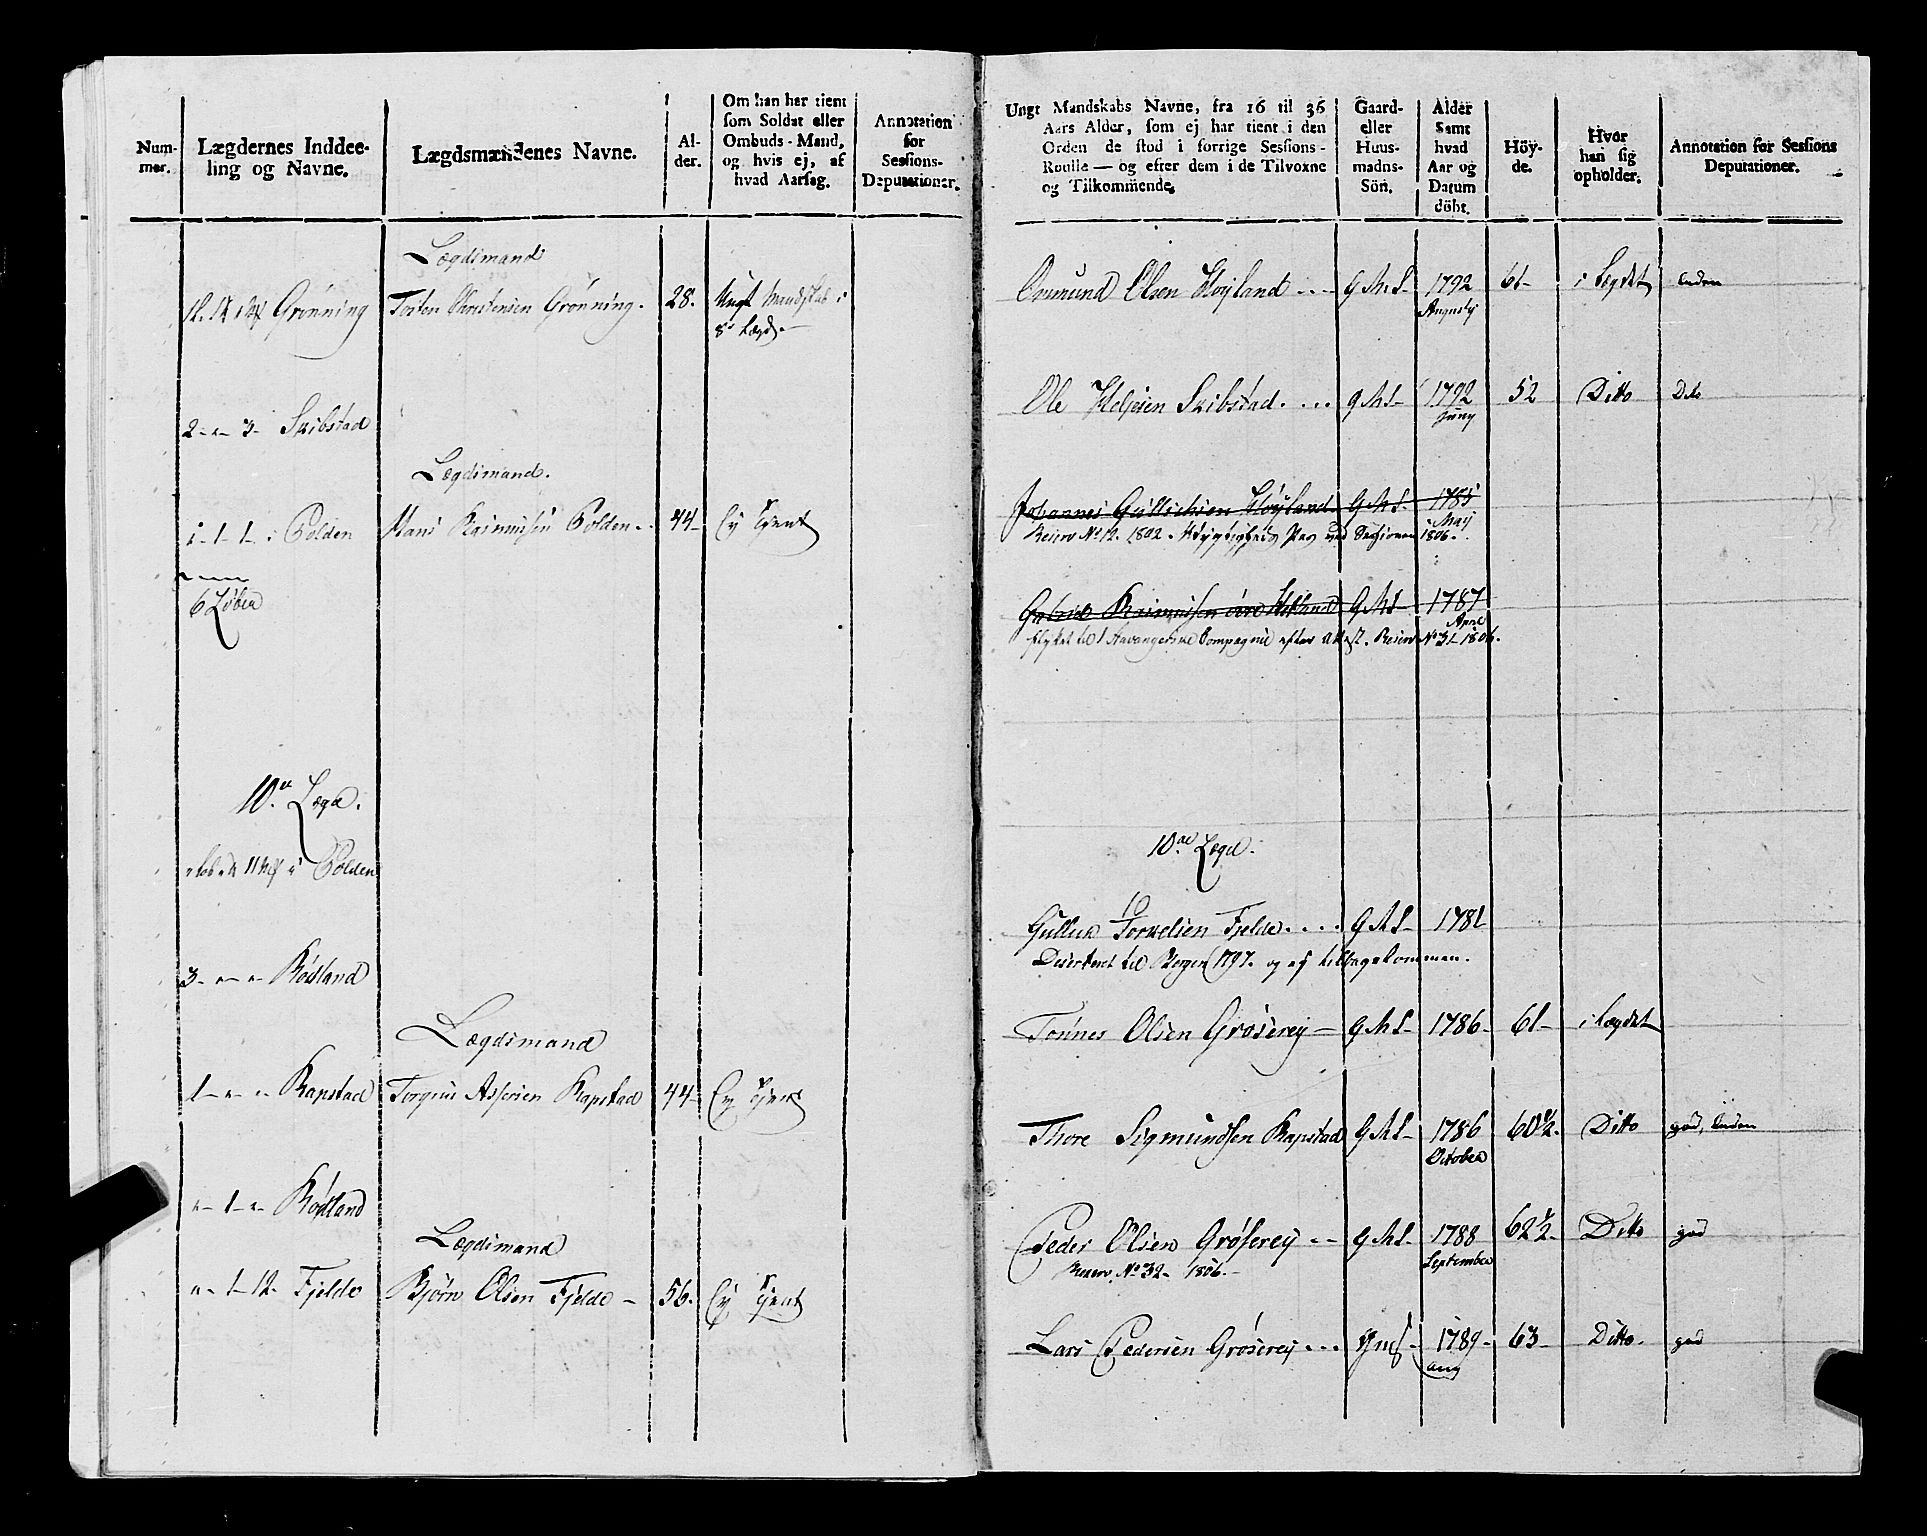 Num-
mer.
Lægdernes Inddee-
ling og Navne.
Lægdsmændenes Navne.
Al-
der.
Om han har tient
som Soldat eller
Ombuds-Mand,
og hvis ej, af
hvad Aarsag.
Annotation
for
Sessions-
Deputationer.
Lægdsmand
Grønning Torsten Christensen Grønning. 28. Ungt Mandskab i
8de Lægd.
2 - " - 3 - Skibstad
Lægdsmand.
1 - 1 - 1 - i Polden Hans Rasmussen Polden. 44 Ej Tjent
6 Løber
10de Lægd.
i Polden
3 - " - " - Rødland
Lægdsmand
1 - " - " - Rapstad Torgius Assersen Rapstad 44 Ej Tjent
" - 1 - " - Rødland
Lægdsmand
" - 1 - 12 - Fjelde Bjørn Olsen Fjelde - 56. Ej Tjent
Ungt Mandskabs Navne, fra 16 til 36
Aars Alder, som ej har tient i den
Orden de stod i forrige Sessions-
Roulle — og efter dem i de Tilvoxne
og Tilkommende.
Gaard-
eller
Huus-
madns-
Sön.
Alder
Samt
hvad
Aar og
Datum
döbt.
Höy-
de.
Hvor
han sig
opholder.
Annotation for Sessions
Deputationer.
Osmund Olsen Høyland .... G M S - 1792 61 - i Lægdet Liden
Augusty
Ole Helgesen Skibstad .... G M S - 1792 52 Ditto Dito
Juny
Johannes Gullichsen Høyland G M S - 1785
May
Reserv No 12. 1802. Udygtigheds Pas ved Sessionen 1806.
Rasmussen Hetland G M S - 1787
April
til Stavangerske Compagnie efter Attest. Reserv No 31 1806.
10de Lægd.
10
Gullik Torkelsen Fjelde .... G M S - 1781
Deserteret til Bergen 1797. og ej tilbagekommen.
Tønnes Olsen Grøserey - G M S - 1786 - 61 - i Lægdet
Thore Sigmundsen Rapstad G M S - 1786 60 1/2. Ditto god, Liden
October
Peder Olsen Grøserey - - G M S - 1788 62 1/2 - Ditto god
September
Reserv. No 32 - 1806. -
Lars Pedersen Grøserey ... G M S - 1789 - 63 - Ditto. god
aug